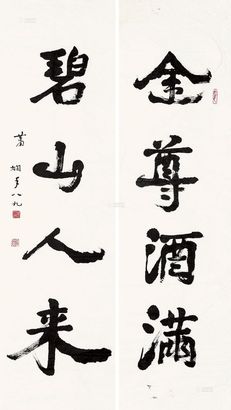 金尊酒满
碧山人来
萧娴年八九